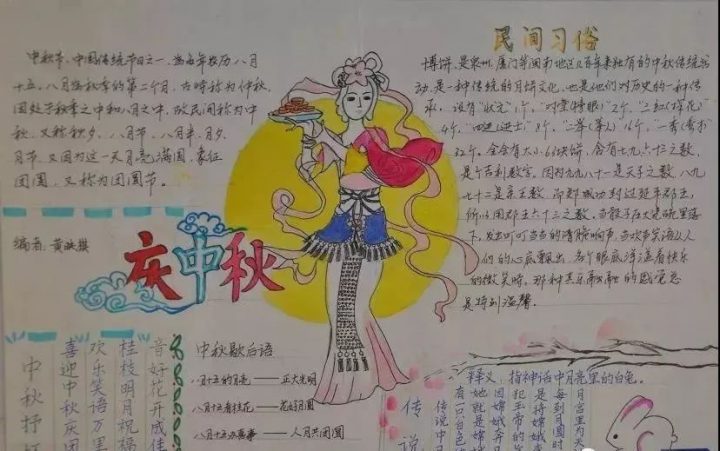 中秋节,中国传统节日之一,为每年农历八月
十五,八月为秋季的第二个月,古时称为仲秋,
因处于秋季之中和八月之中,故民间称为中
秋,又称秋夕、八月节、八月半、月夕
月节,又因为这一天月亮满圆,象征
团圆,又称为团圆节。
编者:黄
庆中秋
民间习俗
博饼,是泉州、厦门等闽南地区几百年来独有的中秋传统活
动,是一种传统的月饼文化,也是他们对历史的一种传
承。设有"状元"1个,"对堂(榜眼)"2个,"三红(探花)"
4个,"四进(进士)"8个,"二举(举人)"16个,"一秀(秀才)"
32个。全会有大小63块饼,含有七九六十三之数,
是个吉利数字。因为九九八十一是天子之数,八九
七十二是亲王数,而郑成功封过延平郡王,
所以用郡王六十三之数。当骰子在大瓷碗里落
下,发出叮叮当当的清脆响声,当欢声笑语从人
们的心底飘出,当个眼底洋溢着快乐
的微笑时,那种其乐融融的感觉总
是特别温馨。
中秋抒
喜迎中秋庆团
欢乐笑语万里
桂枝明月祝福
音好花开成佳
中秋歇后语
八月十五的月亮——正大光明
八月十五看桂花——花好月圆
八月十五办喜事——人月共团圆
传说
释义:指神话中月亮里的白兔。
月宫里为天
每到月圆时
是持嫦娥
犯玉帝的
因嫦娥奔
她就是嫦
有一只白色
传说中